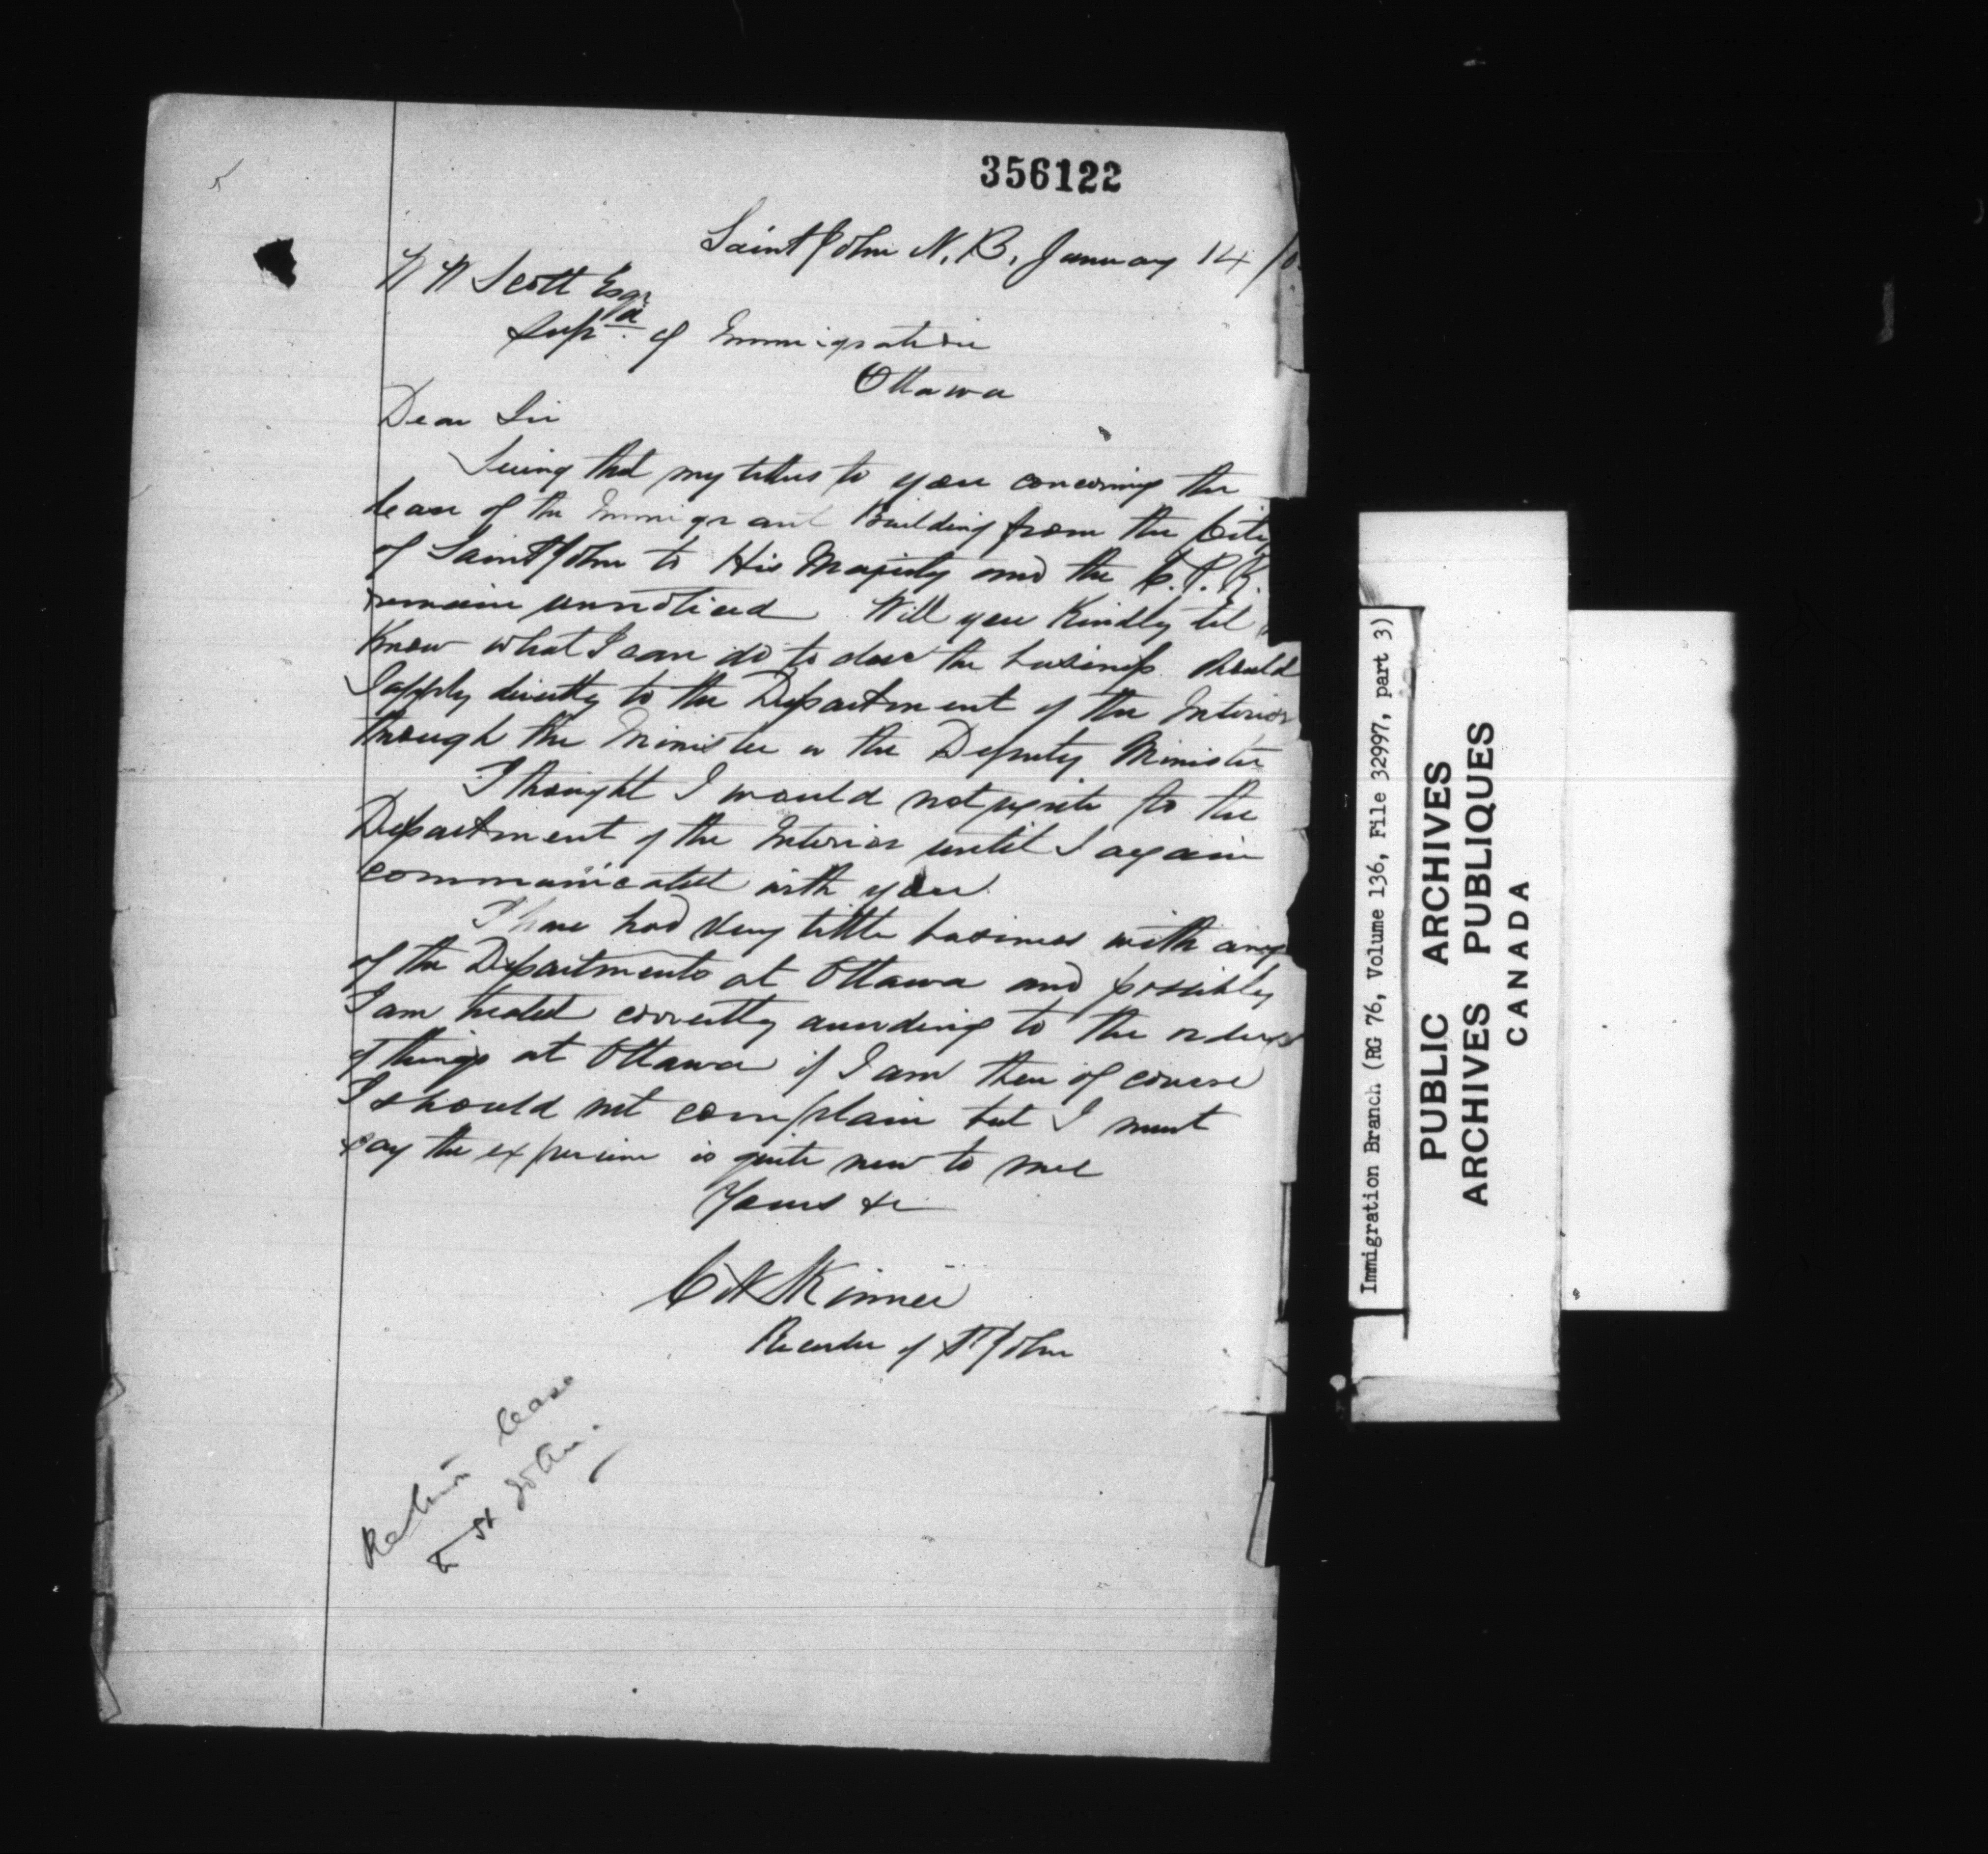 356122
Saint John N. B. January 14 /0
W W Scott Esqr
Supt of Immigration
Ottawa
Dear Sir
Seeing that my letters to you concerning the
lease of the Immigrant Building from the City
of Saint John to His Majesty and the C. P. R.
remain unnoticed Will you kindly let
know what I can do to close the business Should
I apply directly to the Department of the Interior
through the Minister or the Deputy Minister
I thought I would not write to the
Department of the Interior until I again
communicated with you
I have had very little business with any
of the Departments at Ottawa and possibly
I am treated correctly according to the orders
of things at Ottawa if I am then of course
I should not complain but I must
say the experience is quite new to me
Yours &c
C N Skinner
Recorder of St John
Return lease
to St John.
Immigration Branch (RG 76, Volume 136, File 32997, part 3)
PUBLIC ARCHIVES
ARCHIVES PUBLIQUES
CANADA